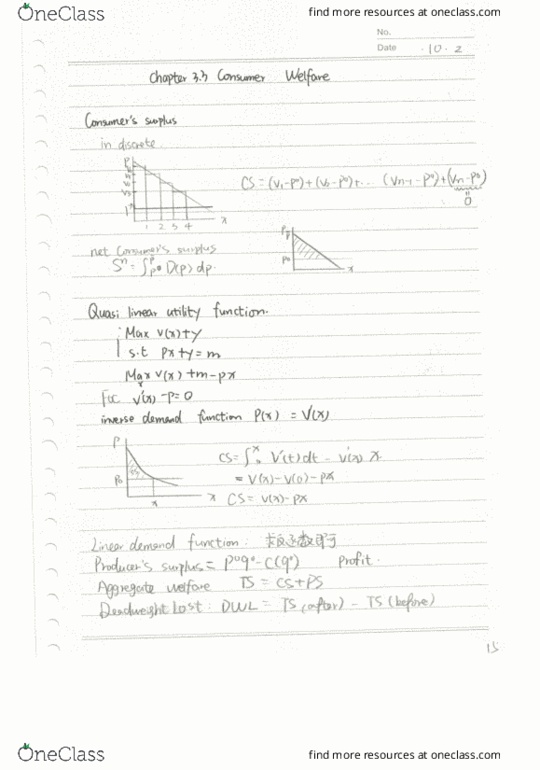 OneClass
find more resources at oneclass.com
No.
Date ·10·2
Chapter 3.3 Consumer Welfare
Consumer's surplus
in discrete
P
1 2 3 4 x
CS = (V₁-P⁰)+(V₂-P⁰)+... (Vn-1-P⁰)+(Vn-P⁰)
0
net Consumer's surplus
Sⁿ = ∫ D(p) dp.
P₀
x
Quasi linear utility function.
Max v(x)+y
s.t px+y=m
Max v(x)+m-px
x
Foc v'(x)-p=0
inverse demand function P(x) = V'(x)
P
P₀
x x
CS = ∫₀ˣ V'(t)dt - v'(x) x
= V(x)-V(0)-px
CS = V(x)-px
Linear demand function:
Producer's surplus = P⁰q⁰-C(q⁰) Profit.
Aggregate welfare TS = CS+PS
Deadweight Lost: DWL = TS (after) - TS (before)
15
OneClass
find more resources at oneclass.com